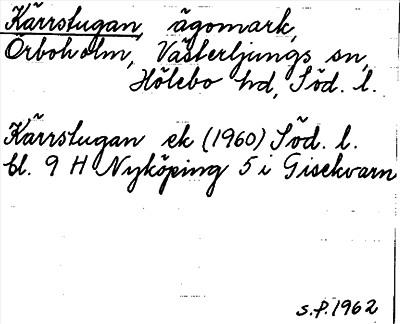 Kärrstugan, ägomark,
Örboholm, Västerljungs sn,
Hölebo hd, Söd. l.
Kärrstugan ek (1960) Söd. l.
bl. 9 H Nyköping 5 i Gisekvarn
s.p.1962